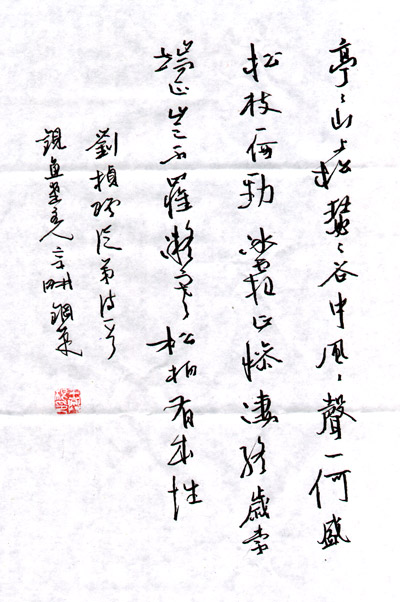 亭〻山上松瑟〻谷中風〻聲一何盛
松枝一何勁冰霜正慘淒終歲常
端正豈不罹凝寒松柏有本性
劉楨贈從弟詩一首
魚堂主人